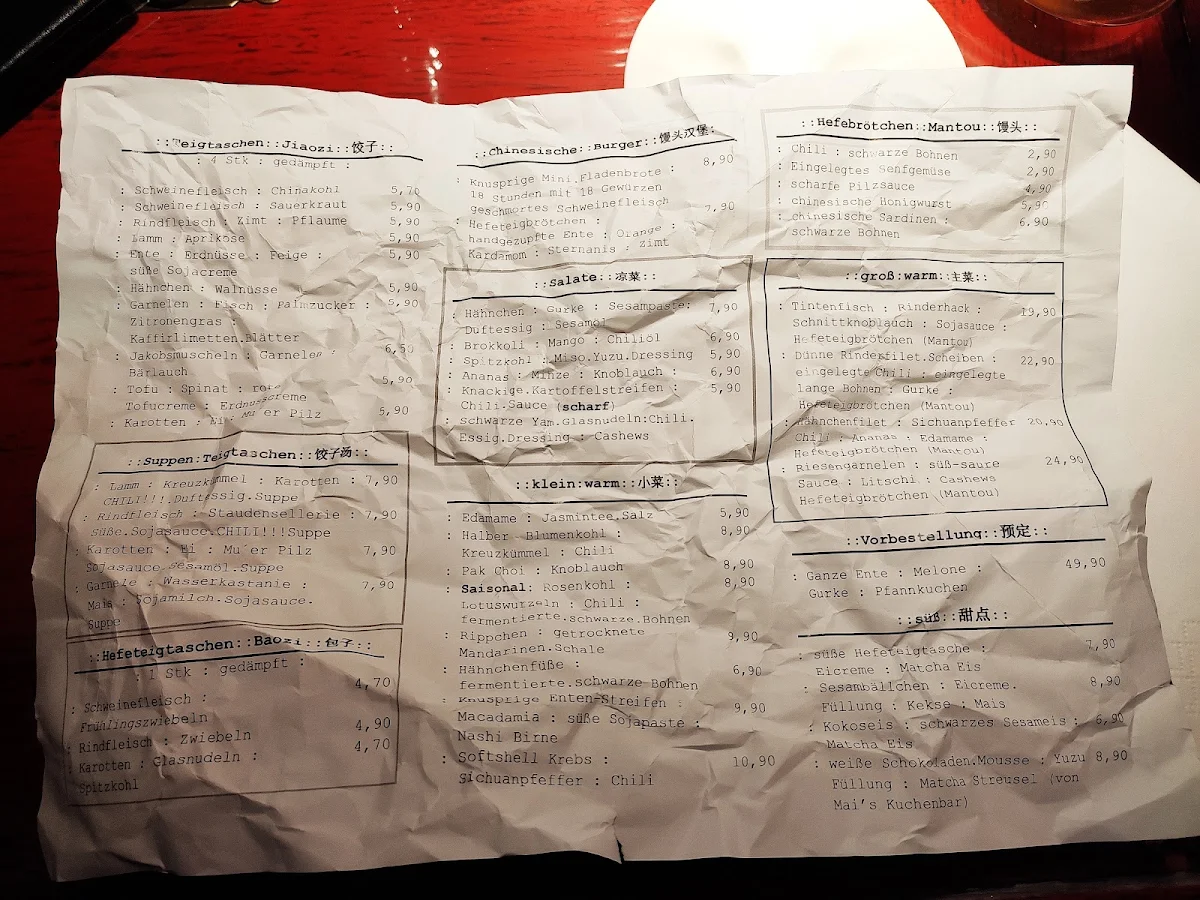 ::Teigtaschen::Jiaozi::饺子::
: 4 Stk : gedämpft :
: Schweinefleisch : Chinakohl 5,70
: Schweinefleisch : Sauerkraut 5,90
: Rindfleisch : Zimt : Pflaume 5,90
: Lamm : Aprikose 5,90
: Ente : Erdnüsse : Feige : 5,90
süße Sojacreme
: Hähnchen : Walnüsse 5,90
: Garnelen : Fisch : Palmzucker : 5,90
Zitronengras :
Kaffirlimetten.Blätter
: Jakobsmuscheln : Garnelen : 6,50
Bärlauch
: Tofu : Spinat : rote 5,90
Tofucreme : Erdnusscreme
: Karotten : Ei : Mu'er Pilz 5,90
::Suppen:Teigtaschen::饺子汤::
: Lamm : Kreuzkümmel : Karotten : 7,90
CHILI!!!.Duftessig.Suppe
: Rindfleisch : Staudensellerie : 7,90
süße.Sojasauce.CHILI!!!Suppe
: Karotten : Ei : Mu'er Pilz 7,90
Sojasauce.Sesamöl.Suppe
: Garnele : Wasserkastanie : 7,90
Mais : Sojamilch.Sojasauce.
Suppe
::Hefeteigtaschen::Baozi::包子::
: 1 Stk : gedämpft :
: Schweinefleisch : 4,70
Frühlingszwiebeln
: Rindfleisch : Zwiebeln 4,90
: Karotten : Glasnudeln : 4,70
Spitzkohl
::Chinesische::Burger::馒头汉堡:
: Knusprige Mini.Fladenbrote : 8,90
18 Stunden mit 18 Gewürzen
geschmortes Schweinefleisch
: Hefeteigbrötchen : 7,90
handgezupfte Ente : Orange :
Kardamom : Sternanis : Zimt
::Salate::凉菜::
: Hähnchen : Gurke : Sesampaste: 7,90
Duftessig : Sesamöl
: Brokkoli : Mango : Chiliöl 6,90
: Spitzkohl : Miso.Yuzu.Dressing 5,90
: Ananas : Minze : Knoblauch : 6,90
: Knackige.Kartoffelstreifen : 5,90
Chili.Sauce (scharf)
: schwarze Yam.Glasnudeln:Chili.
Essig.Dressing : Cashews
::klein:warm::小菜::
: Edamame : Jasmintee.Salz 5,90
: Halber Blumenkohl : 8,90
Kreuzkümmel : Chili
: Pak Choi : Knoblauch 8,90
: Saisonal: Rosenkohl : 8,90
Lotuswurzeln : Chili :
fermentierte.schwarze.Bohnen
: Rippchen : getrocknete 9,90
Mandarinen.Schale
: Hähnchenfüße : 6,90
fermentierte.schwarze Bohnen
: Knusprige Enten-Streifen : 9,90
Macadamia : süße Sojapaste :
Nashi Birne
: Softshell Krebs : 10,90
Sichuanpfeffer : Chili
::Hefebrötchen::Mantou::馒头::
: Chili : schwarze Bohnen 2,90
: Eingelegtes Senfgemüse 2,90
: scharfe Pilzsauce 4,90
: chinesische Honigwurst 5,90
: chinesische Sardinen : 6,90
schwarze Bohnen
::groß:warm::主菜::
: Tintenfisch : Rinderhack : 19,90
Schnittknoblauch : Sojasauce :
Hefeteigbrötchen (Mantou)
: Dünne Rinderfilet.Scheiben : 22,90
eingelegte Chili : eingelegte
lange Bohnen : Gurke :
Hefeteigbrötchen (Mantou)
: Hähnchenfilet : Sichuanpfeffer 20,90
Chili : Ananas : Edamame :
Hefeteigbrötchen (Mantou)
: Riesengarnelen : süß-saure 24,90
Sauce : Litschi : Cashews
Hefeteigbrötchen (Mantou)
::Vorbestellung::预定::
: Ganze Ente : Melone : 49,90
Gurke : Pfannkuchen
::süß::甜点::
: süße Hefeteigtasche : 7,90
Eicreme : Matcha Eis
: Sesambällchen : Eicreme. 8,90
Füllung : Kekse : Mais
: Kokoseis : schwarzes Sesameis : 6,90
Matcha Eis
: weiße Schokoladen.Mousse : Yuzu 8,90
Füllung : Matcha Streusel (von
Mai's Kuchenbar)